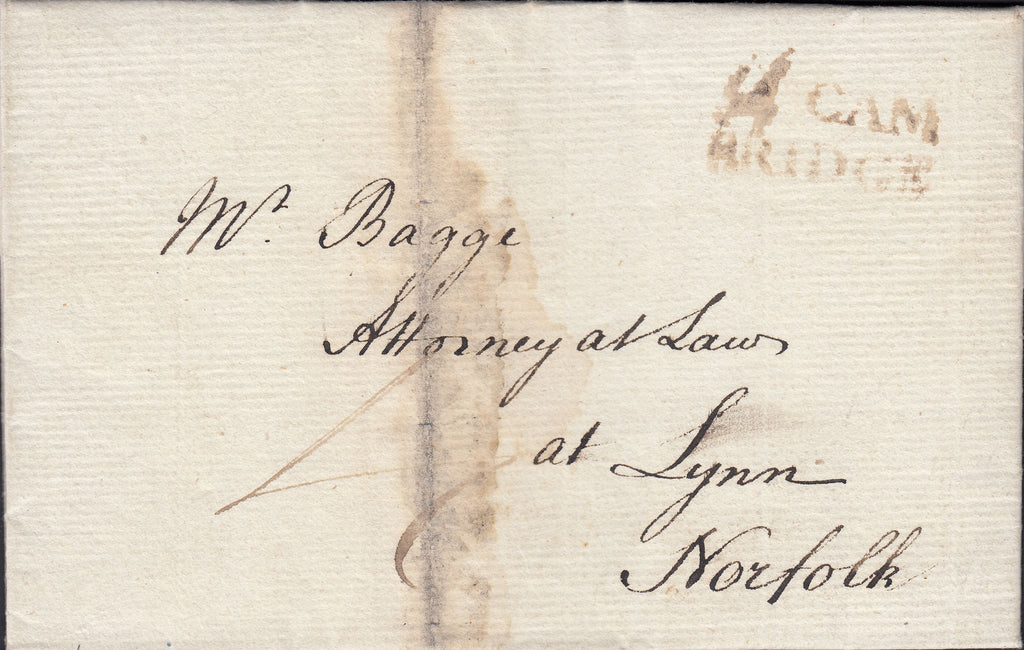 CAM
BRIDGE
Mr. Bagge
Attorney at Law
at Lynn
Norfolk